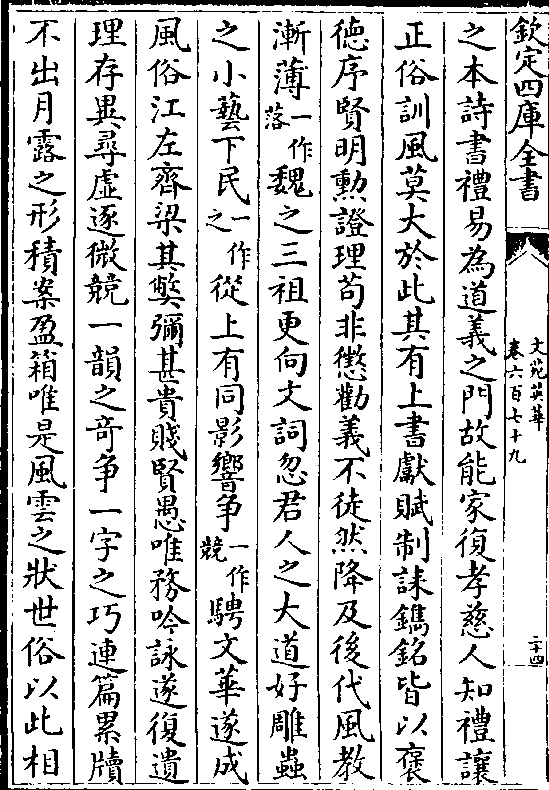 欽定四庫全書
文苑英華
卷六百七十九
二十四
之本詩書禮易為道義之門故能家復孝慈人知禮讓
正俗訓風莫大於此其有上書獻賦制誄鐫銘皆以褒
徳序賢明勲證理苟非懲勸義不徒然降及後代風教
漸薄一作落魏之三祖更向文詞忽君人之大道好雕蟲
之小藝下民一作之從上有同影響爭一作競騁文華遂成
風俗江左齊梁其弊彌甚貴賤賢愚唯務吟詠遂復遺
理存異尋虛逐微競一韻之竒争一字之巧連篇累牘
不出月露之形積案盈箱唯是風雲之狀世俗以此相